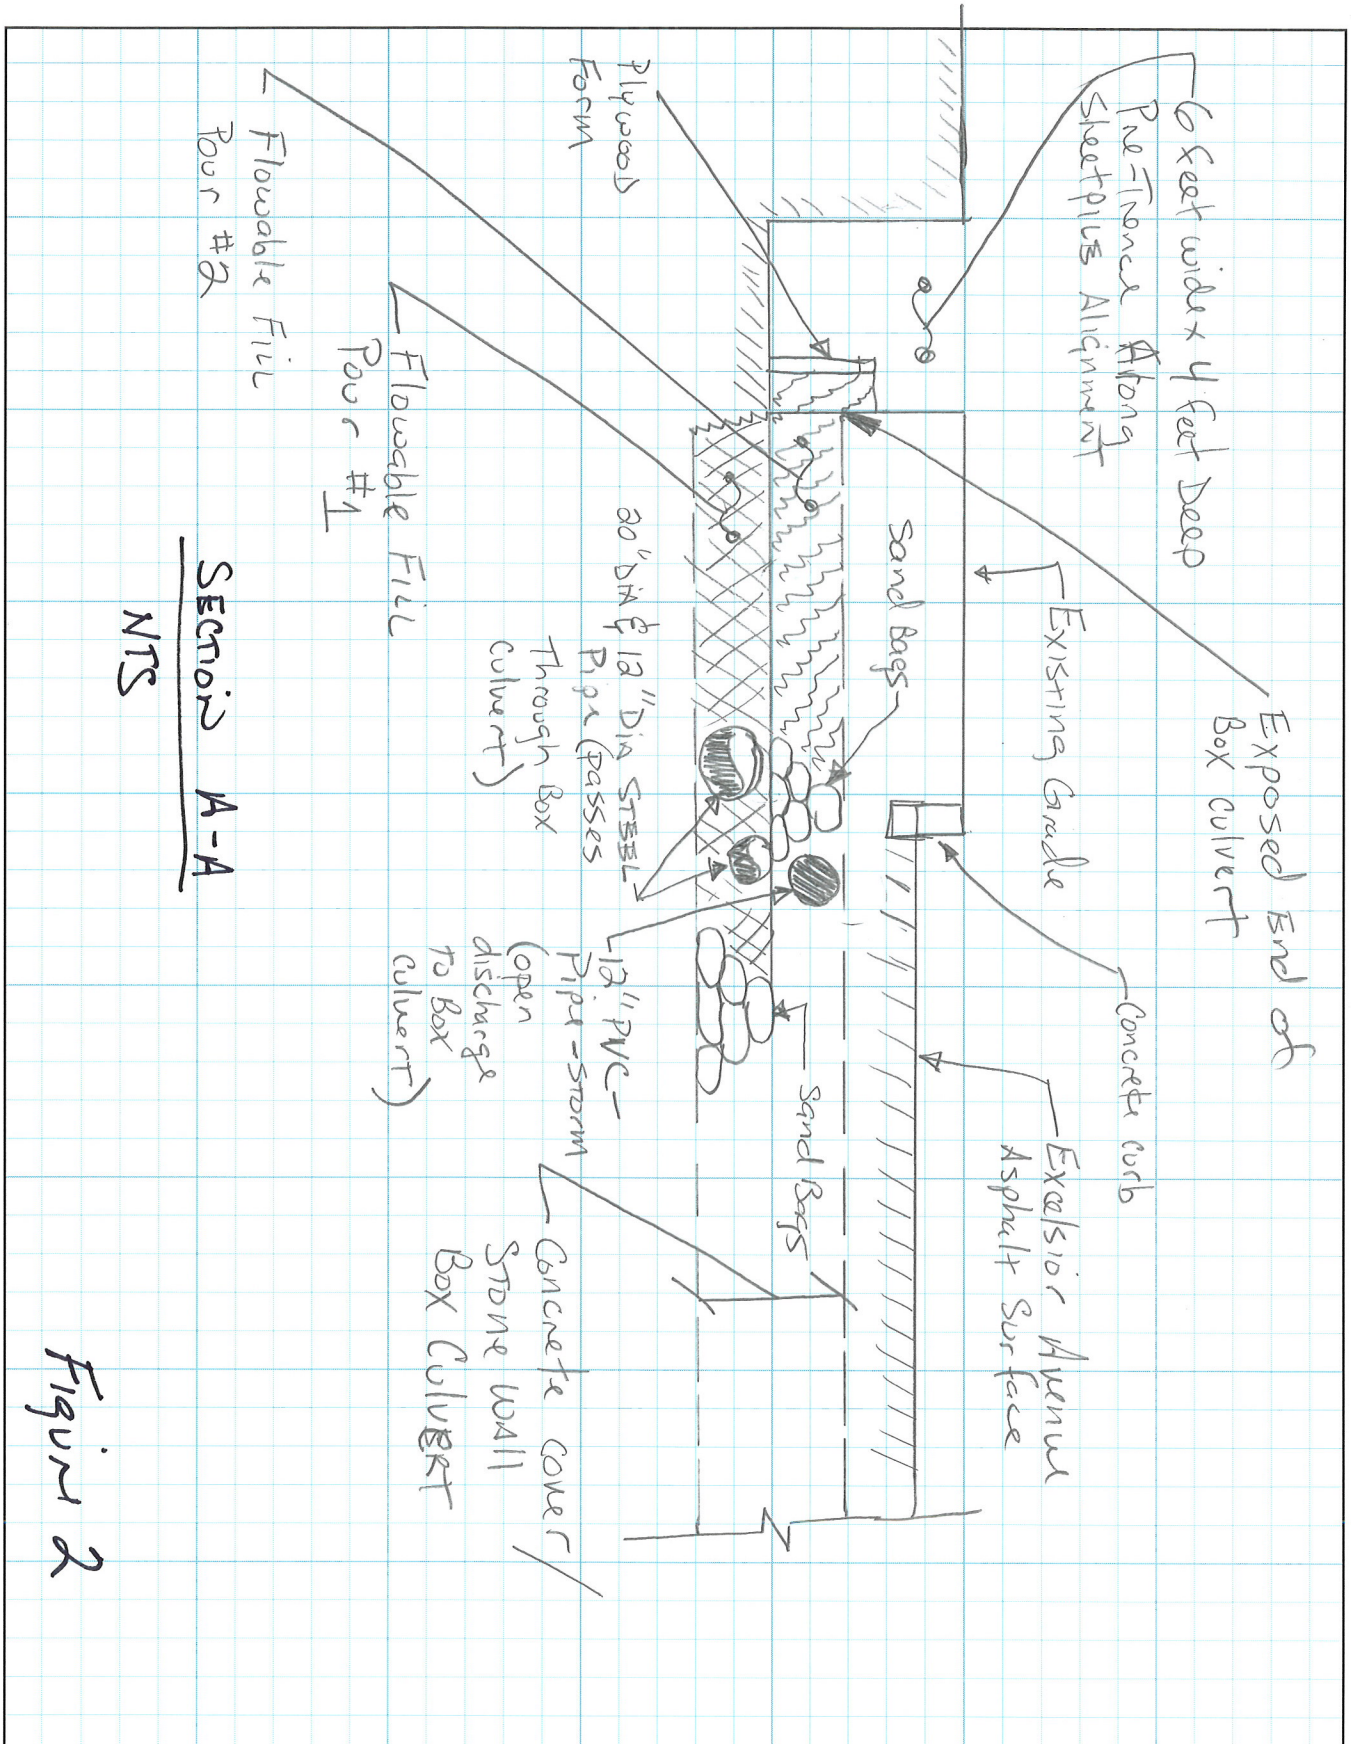 6 feet wide x 4 feet Deep
Pre-Trench Along
Sheetpile Alignment
Exposed End of
Box Culvert
Existing Grade
Concrete curb
Excelsior Avenue
Asphalt Surface
Sand Bags
Sand Bags
Plywood
Form
20" DIA & 12" DIA STEEL
Pipe (passes
Through Box
Culvert)
12" PVC
Pipe - Storm
(open
discharge
To Box
Culvert)
Concrete Cover /
Stone Wall
Box CulvERT
Flowable Fill
Pour #1
Flowable Fill
Pour #2
SECTION A-A
NTS
Figure 2